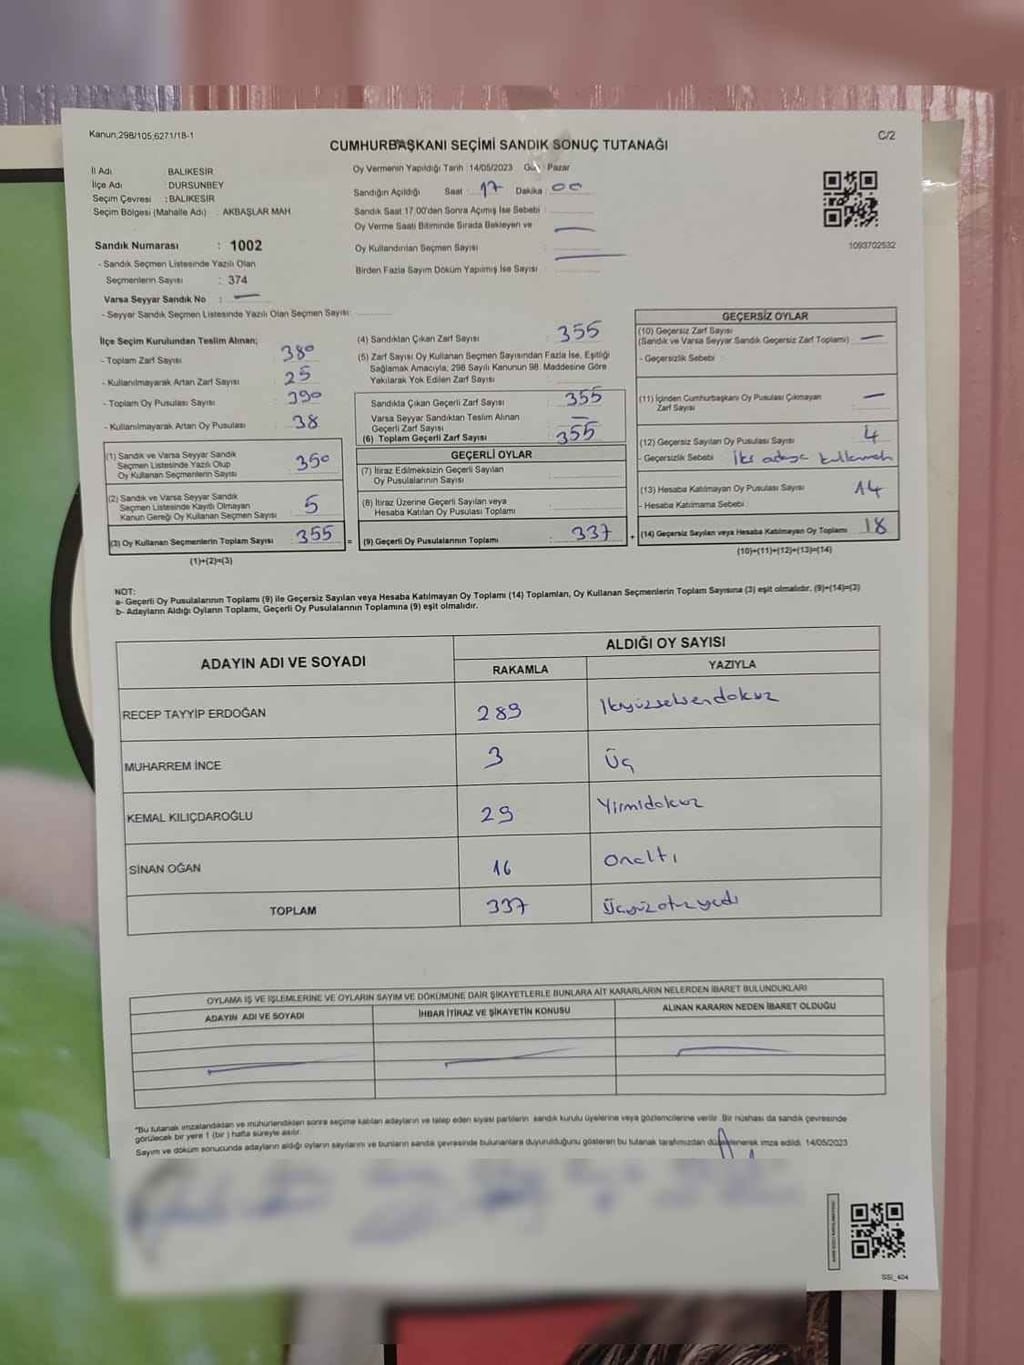 Kanun;298/105;6271/18-1
C/2
CUMHURBAŞKANI SEÇİMİ SANDIK SONUÇ TUTANAĞI
İl Adı BALIKESİR
İlçe Adı DURSUNBEY
Seçim Çevresi : BALIKESİR
Seçim Bölgesi (Mahalle Adı) : AKBAŞLAR MAH
Sandık Numarası : 1002
- Sandık Seçmen Listesinde Yazılı Olan
Seçmenlerin Sayısı : 374
Varsa Seyyar Sandık No : —
- Seyyar Sandık Seçmen Listesinde Yazılı Olan Seçmen Sayısı:
Oy Vermenin Yapıldığı Tarih :14/05/2023 Gün Pazar
Sandığın Açıldığı Saat : 17 Dakika : 00
Sandık Saat 17:00'den Sonra Açımış İse Sebebi :
Oy Verme Saati Bitiminde Sırada Bekleyen ve —
Oy Kullandırılan Seçmen Sayısı : —
Birden Fazla Sayım Döküm Yapılmış İse Sayısı :
1093702532
İlçe Seçim Kurulundan Teslim Alınan;
- Toplam Zarf Sayısı : 380
- Kullanılmayarak Artan Zarf Sayısı : 25
- Toplam Oy Pusulası Sayısı : 390
- Kullanılmayarak Artan Oy Pusulası : 38
(1) Sandık ve Varsa Seyyar Sandık
Seçmen Listesinde Yazılı Olup
Oy Kullanan Seçmenlerin Sayısı : 350
(2) Sandık ve Varsa Seyyar Sandık
Seçmen Listesinde Kayıtlı Olmayan
Kanun Gereği Oy Kullanan Seçmen Sayısı : 5
(3) Oy Kullanan Seçmenlerin Toplam Sayısı : 355
(1)+(2)=(3)
(4) Sandıktan Çıkan Zarf Sayısı : 355
(5) Zarf Sayısı Oy Kullanan Seçmen Sayısından Fazla İse, Eşitliği
Sağlamak Amacıyla, 298 Sayılı Kanunun 98. Maddesine Göre
Yakılarak Yok Edilen Zarf Sayısı :
Sandıkta Çıkan Geçerli Zarf Sayısı : 355
Varsa Seyyar Sandıktan Teslim Alınan
Geçerli Zarf Sayısı : —
(6) Toplam Geçerli Zarf Sayısı : 355
GEÇERLİ OYLAR
(7) İtiraz Edilmeksizin Geçerli Sayılan
Oy Pusulalarının Sayısı :
(8) İtiraz Üzerine Geçerli Sayılan veya
Hesaba Katılan Oy Pusulası Toplamı :
= (9) Geçerli Oy Pusulalarının Toplamı : 337
GEÇERSİZ OYLAR
(10) Geçersiz Zarf Sayısı
(Sandık ve Varsa Seyyar Sandık Geçersiz Zarf Toplamı) : —
- Geçersizlik Sebebi :
(11) İçinden Cumhurbaşkanı Oy Pusulası Çıkmayan
Zarf Sayısı : —
(12) Geçersiz Sayılan Oy Pusulası Sayısı : 4
- Geçersizlik Sebebi : İki adaya kullanmak
(13) Hesaba Katılmayan Oy Pusulası Sayısı : 14
- Hesaba Katılmama Sebebi :
+ (14) Geçersiz Sayılan veya Hesaba Katılmayan Oy Toplamı : 18
(10)+(11)+(12)+(13)=(14)
NOT:
a- Geçerli Oy Pusulalarının Toplamı (9) ile Geçersiz Sayılan veya Hesaba Katılmayan Oy Toplamı (14) Toplamları, Oy Kullanan Seçmenlerin Toplam Sayısına (3) eşit olmalıdır. (9)+(14)=(3)
b- Adayların Aldığı Oyların Toplamı, Geçerli Oy Pusulalarının Toplamına (9) eşit olmalıdır.
ADAYIN ADI VE SOYADI ALDIĞI OY SAYISI
RAKAMLA YAZIYLA
RECEP TAYYİP ERDOĞAN 289 İkiyüzseksendokuz
MUHARREM İNCE 3 Üç
KEMAL KILIÇDAROĞLU 29 Yirmidokuz
SİNAN OĞAN 16 Onaltı
TOPLAM 337 Üçyüzotuzyedi
OYLAMA İŞ VE İŞLEMLERİNE VE OYLARIN SAYIM VE DÖKÜMÜNE DAİR ŞİKAYETLERLE BUNLARA AİT KARARLARIN NELERDEN İBARET BULUNDUKLARI
ADAYIN ADI VE SOYADI İHBAR İTİRAZ VE ŞİKAYETİN KONUSU ALINAN KARARIN NEDEN İBARET OLDUĞU
*Bu tutanak imzalandıktan ve mühürlendikten sonra seçime katılan adayların ve talep eden siyasi partilerin sandık kurulu üyelerine veya gözlemcilerine verilir. Bir nüshası da sandık çevresinde
görülecek bir yere 1 (bir ) hafta süreyle asılır.
Sayım ve döküm sonucunda adayların aldığı oyların sayılarını ve bunların sandık çevresinde bulunanlara duyurulduğunu gösteren bu tutanak tarafımızdan düzenlenerek imza edildi. 14/05/2023
SSİ_404